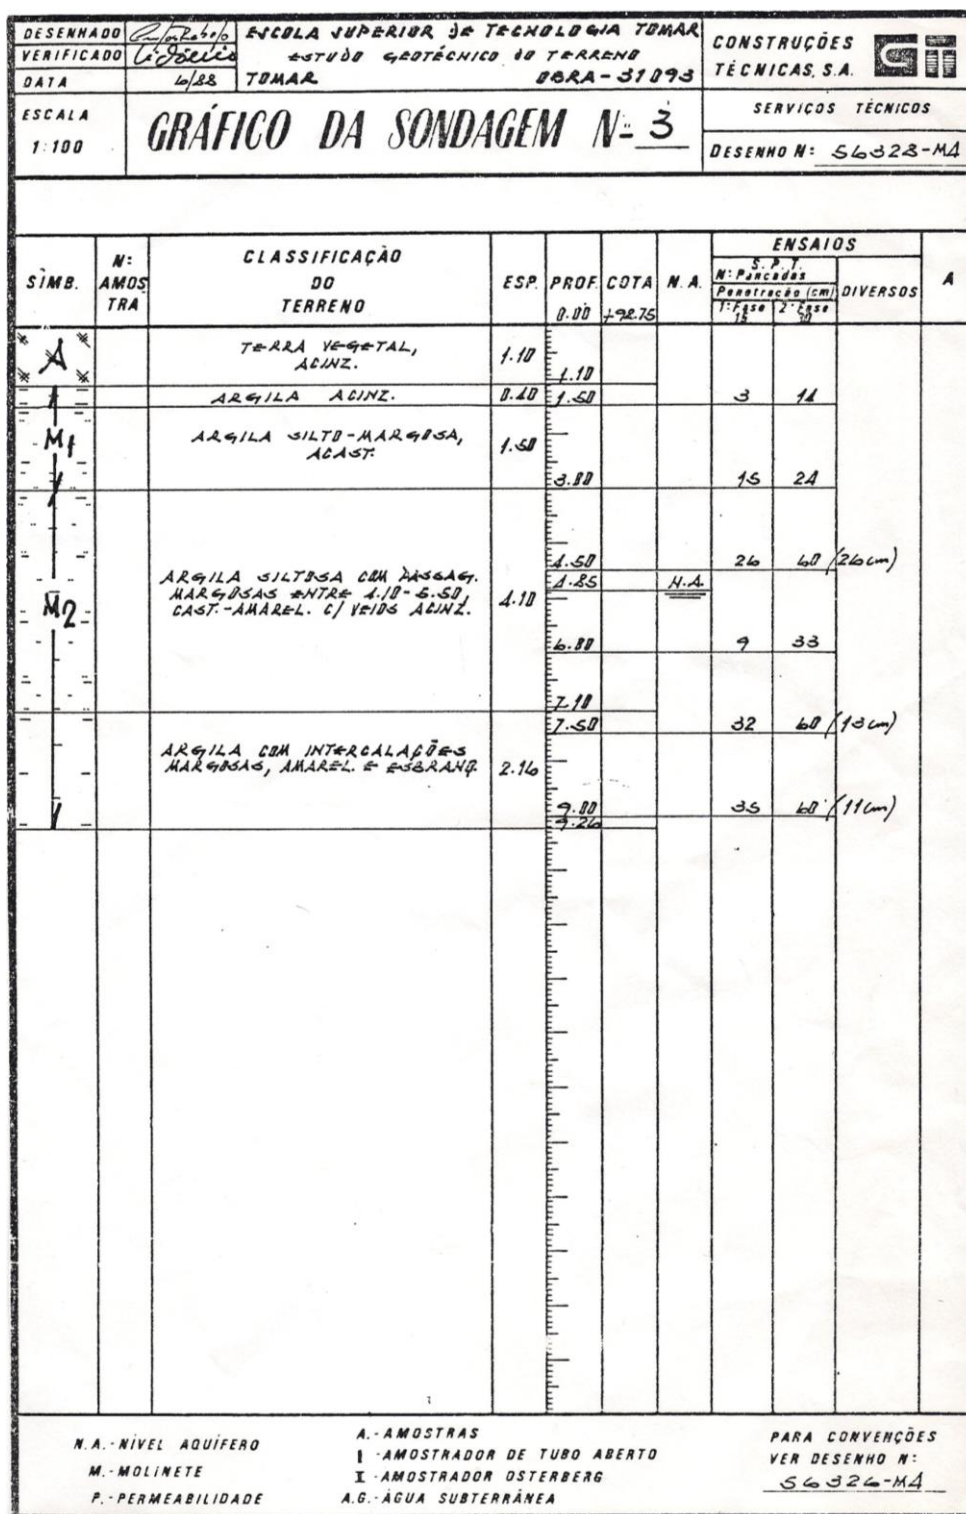 DESENHADO
VERIFICADO
DATA 6/88
ESCOLA SUPERIOR DE TECNOLOGIA TOMAR
ESTUDO GEOTÉCNICO DO TERRENO
TOMAR OBRA-31093
CONSTRUÇÕES
TÉCNICAS, S.A.
ESCALA
1:100
GRÁFICO DA SONDAGEM Nº 3
SERVIÇOS TÉCNICOS
DESENHO Nº: 56328-MA
SÍMB.
Nº:
AMOS
TRA
CLASSIFICAÇÃO
DO
TERRENO
ESP.
PROF.
0.00
COTA
+92.75
N.A.
ENSAIOS
S.P.T.
Nº: Pancadas
Penetração (cm)
1ª Fase
15
2ª Fase
30
DIVERSOS
A
A
TERRA VEGETAL,
ACINZ.
1.10
1.10
ARGILA ACINZ. 0.40 1.50 3 14
M1
ARGILA SILTO-MARGOSA,
ACAST.
1.50
3.00 15 24
4.50 26 60 (26cm)
4.85 N.A.
M2
ARGILA SILTOSA COM PASSAG.
MARGOSAS ENTRE 4.10-5.50,
CAST.-AMAREL. C/ VEIOS ACINZ.
4.10
6.00 9 33
7.10
7.50 32 60 (13cm)
ARGILA COM INTERCALAÇÕES
MARGOSAS, AMAREL. E ESBRANQ.
2.16
9.00 35 60 (11cm)
9.26
N.A.-NÍVEL AQUÍFERO
M.-MOLINETE
P.-PERMEABILIDADE
A.-AMOSTRAS
I -AMOSTRADOR DE TUBO ABERTO
I -AMOSTRADOR OSTERBERG
A.G.-ÁGUA SUBTERRÂNEA
PARA CONVENÇÕES
VER DESENHO Nº:
56326-MA